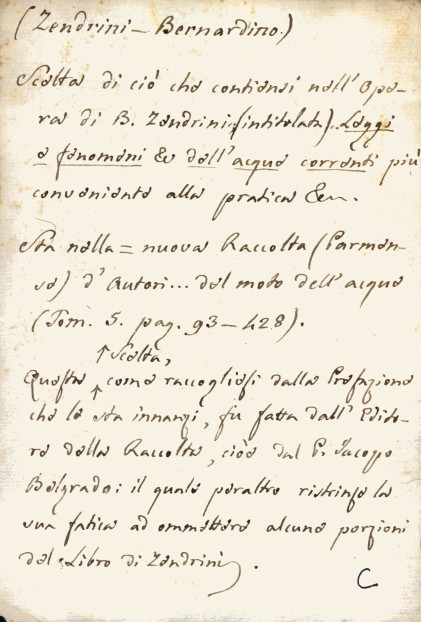 (Zendrini - Bernardino.)
Scelta di ciò che contiensi nell'Ope-
ra di B. Zendrini (intitolata). Leggi
e fenomeni &c dell'acque correnti più
conveniente alla pratica &c.
Sta nella = nuova Raccolta (Parmen-
se) d'Autori... del moto dell'acque
(Tom. 5. pag. 93-428).
↑ Scelta,
Questa ↑ come raccogliesi dalla Prefazione
che le sta innanzi, fu fatta dall'Edito-
re della Raccolta, cioè dal P. Jacopo
Belgrado: il quale peraltro ristrinse la
sua fatica ad ommettere alcune porzioni
del Libro di Zendrini.
C